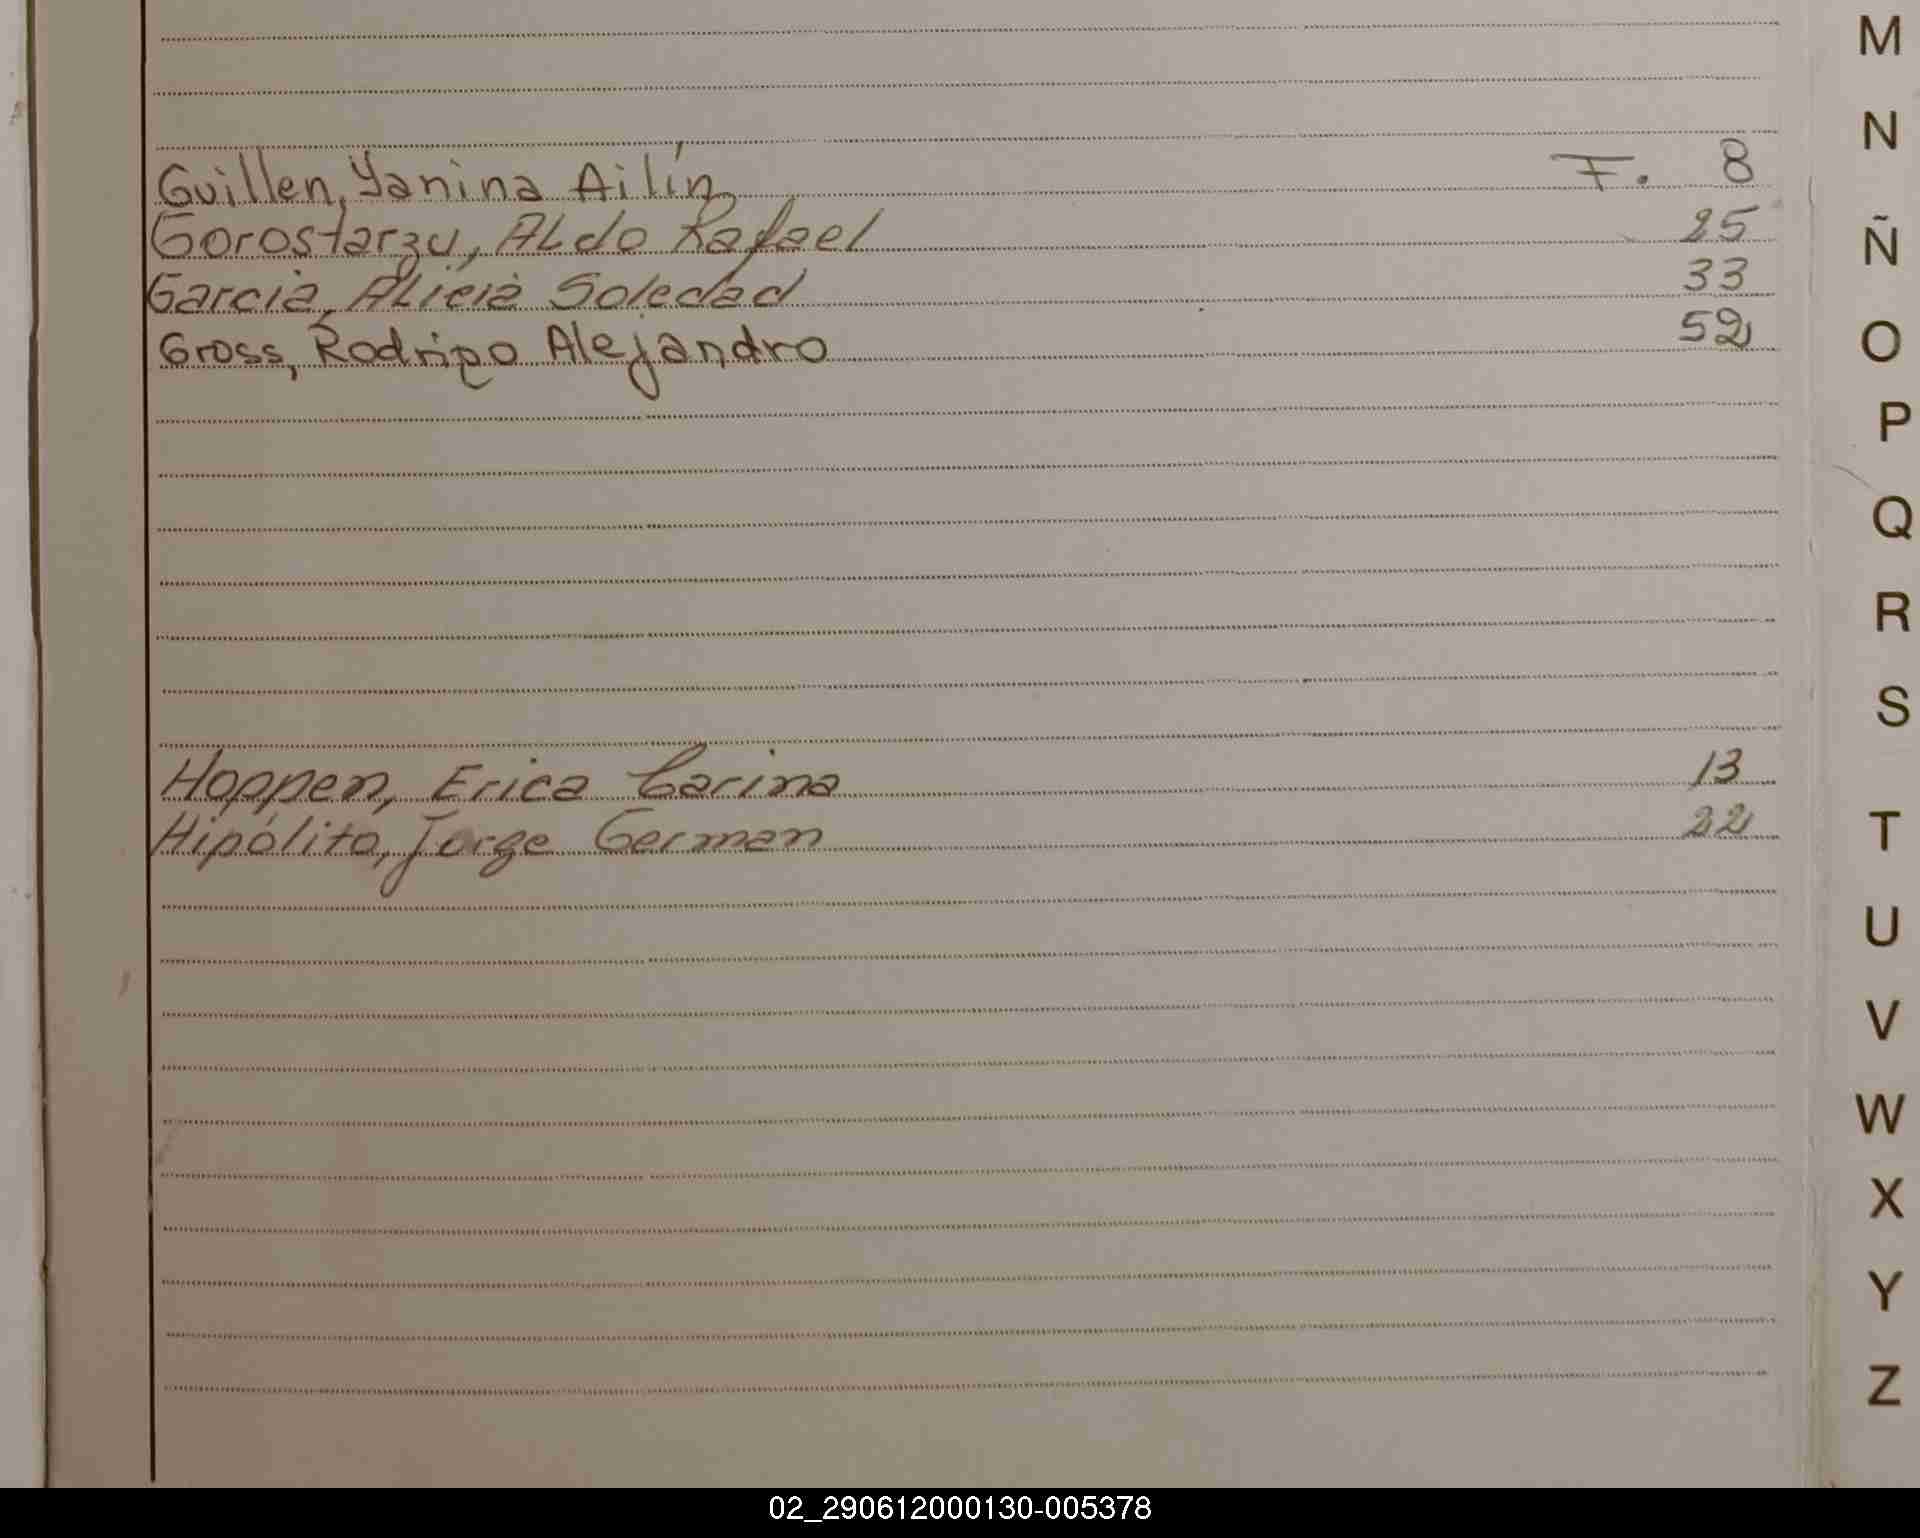 Guillen, Yanina Ailín F. 8
Gorostarzu, Aldo Rafael 25
Garcia, Alicia Soledad 33
Gross, Rodrigo Alejandro 52
Hoppen, Erica Carina 13
Hipólito, Jorge German 22
M
N
Ñ
O
P
Q
R
S
T
U
V
W
X
Y
Z
02_290612000130-005378